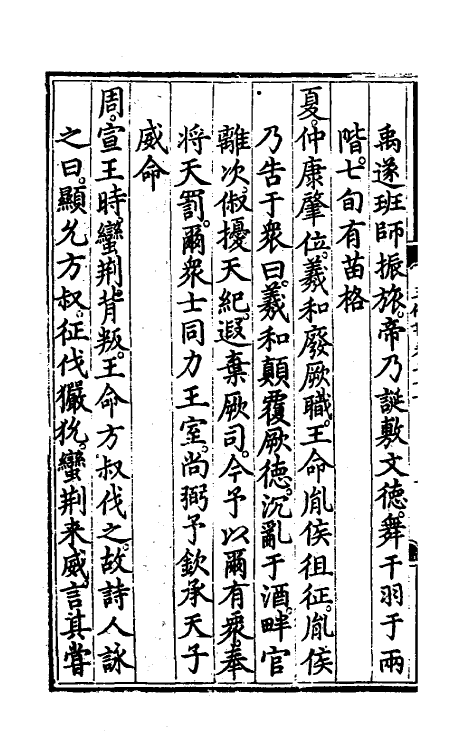 禹遂班師振旅。帝乃誕敷文德。舞干羽于兩
階。七旬有苗格
夏。仲康肇位。羲和廢厥職。王命胤侯徂征。胤侯
乃告于衆曰。羲和顛覆厥德。沉亂于酒。畔官
離次。俶擾天紀。遐棄厥司。今予以爾有衆奉
將天罰。爾衆士同力王室。尚弼予欽承天子
威命
周。宣王時。蠻荆背叛。王命方叔伐之。故詩人詠
之曰。顯允方叔。征伐玁狁。蠻荆来威。言其嘗